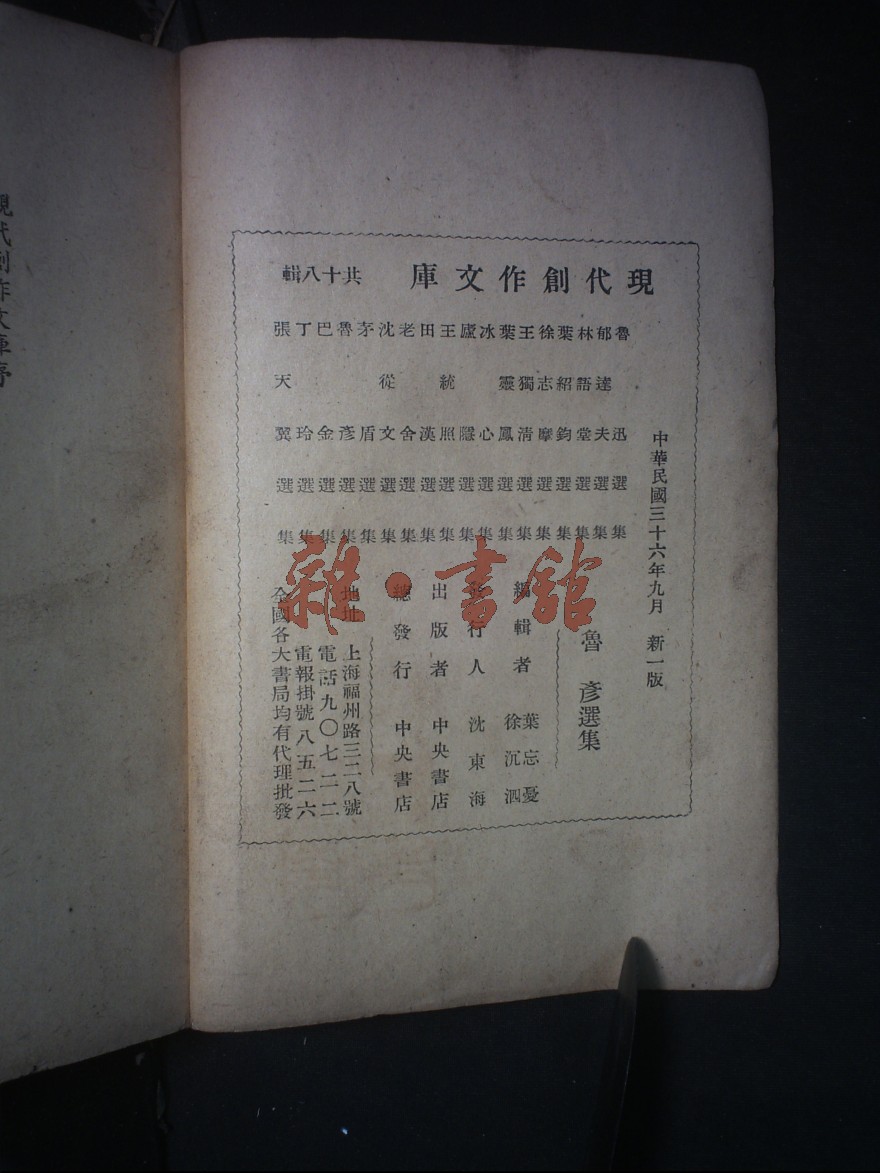 現代創作文庫 共十八輯
魯迅選集
郁達夫選集
林語堂選集
葉紹鈞選集
徐志摩選集
王獨清選集
葉靈鳳選集
冰心選集
廬隱選集
王統照選集
田漢選集
老舍選集
沈從文選集
茅盾選集
魯彥選集
巴金選集
丁玲選集
張天翼選集
中華民國三十六年九月 新一版
魯彥選集
編輯者 葉忘憂
徐沉泗
發行人 沈東海
出版者 中央書店
總發行 中央書店
地址 上海福州路三二八號
電話九〇七二二
電報掛號八五二六
全國各大書局均有代理批發
現代創作文庫序
雜·書館